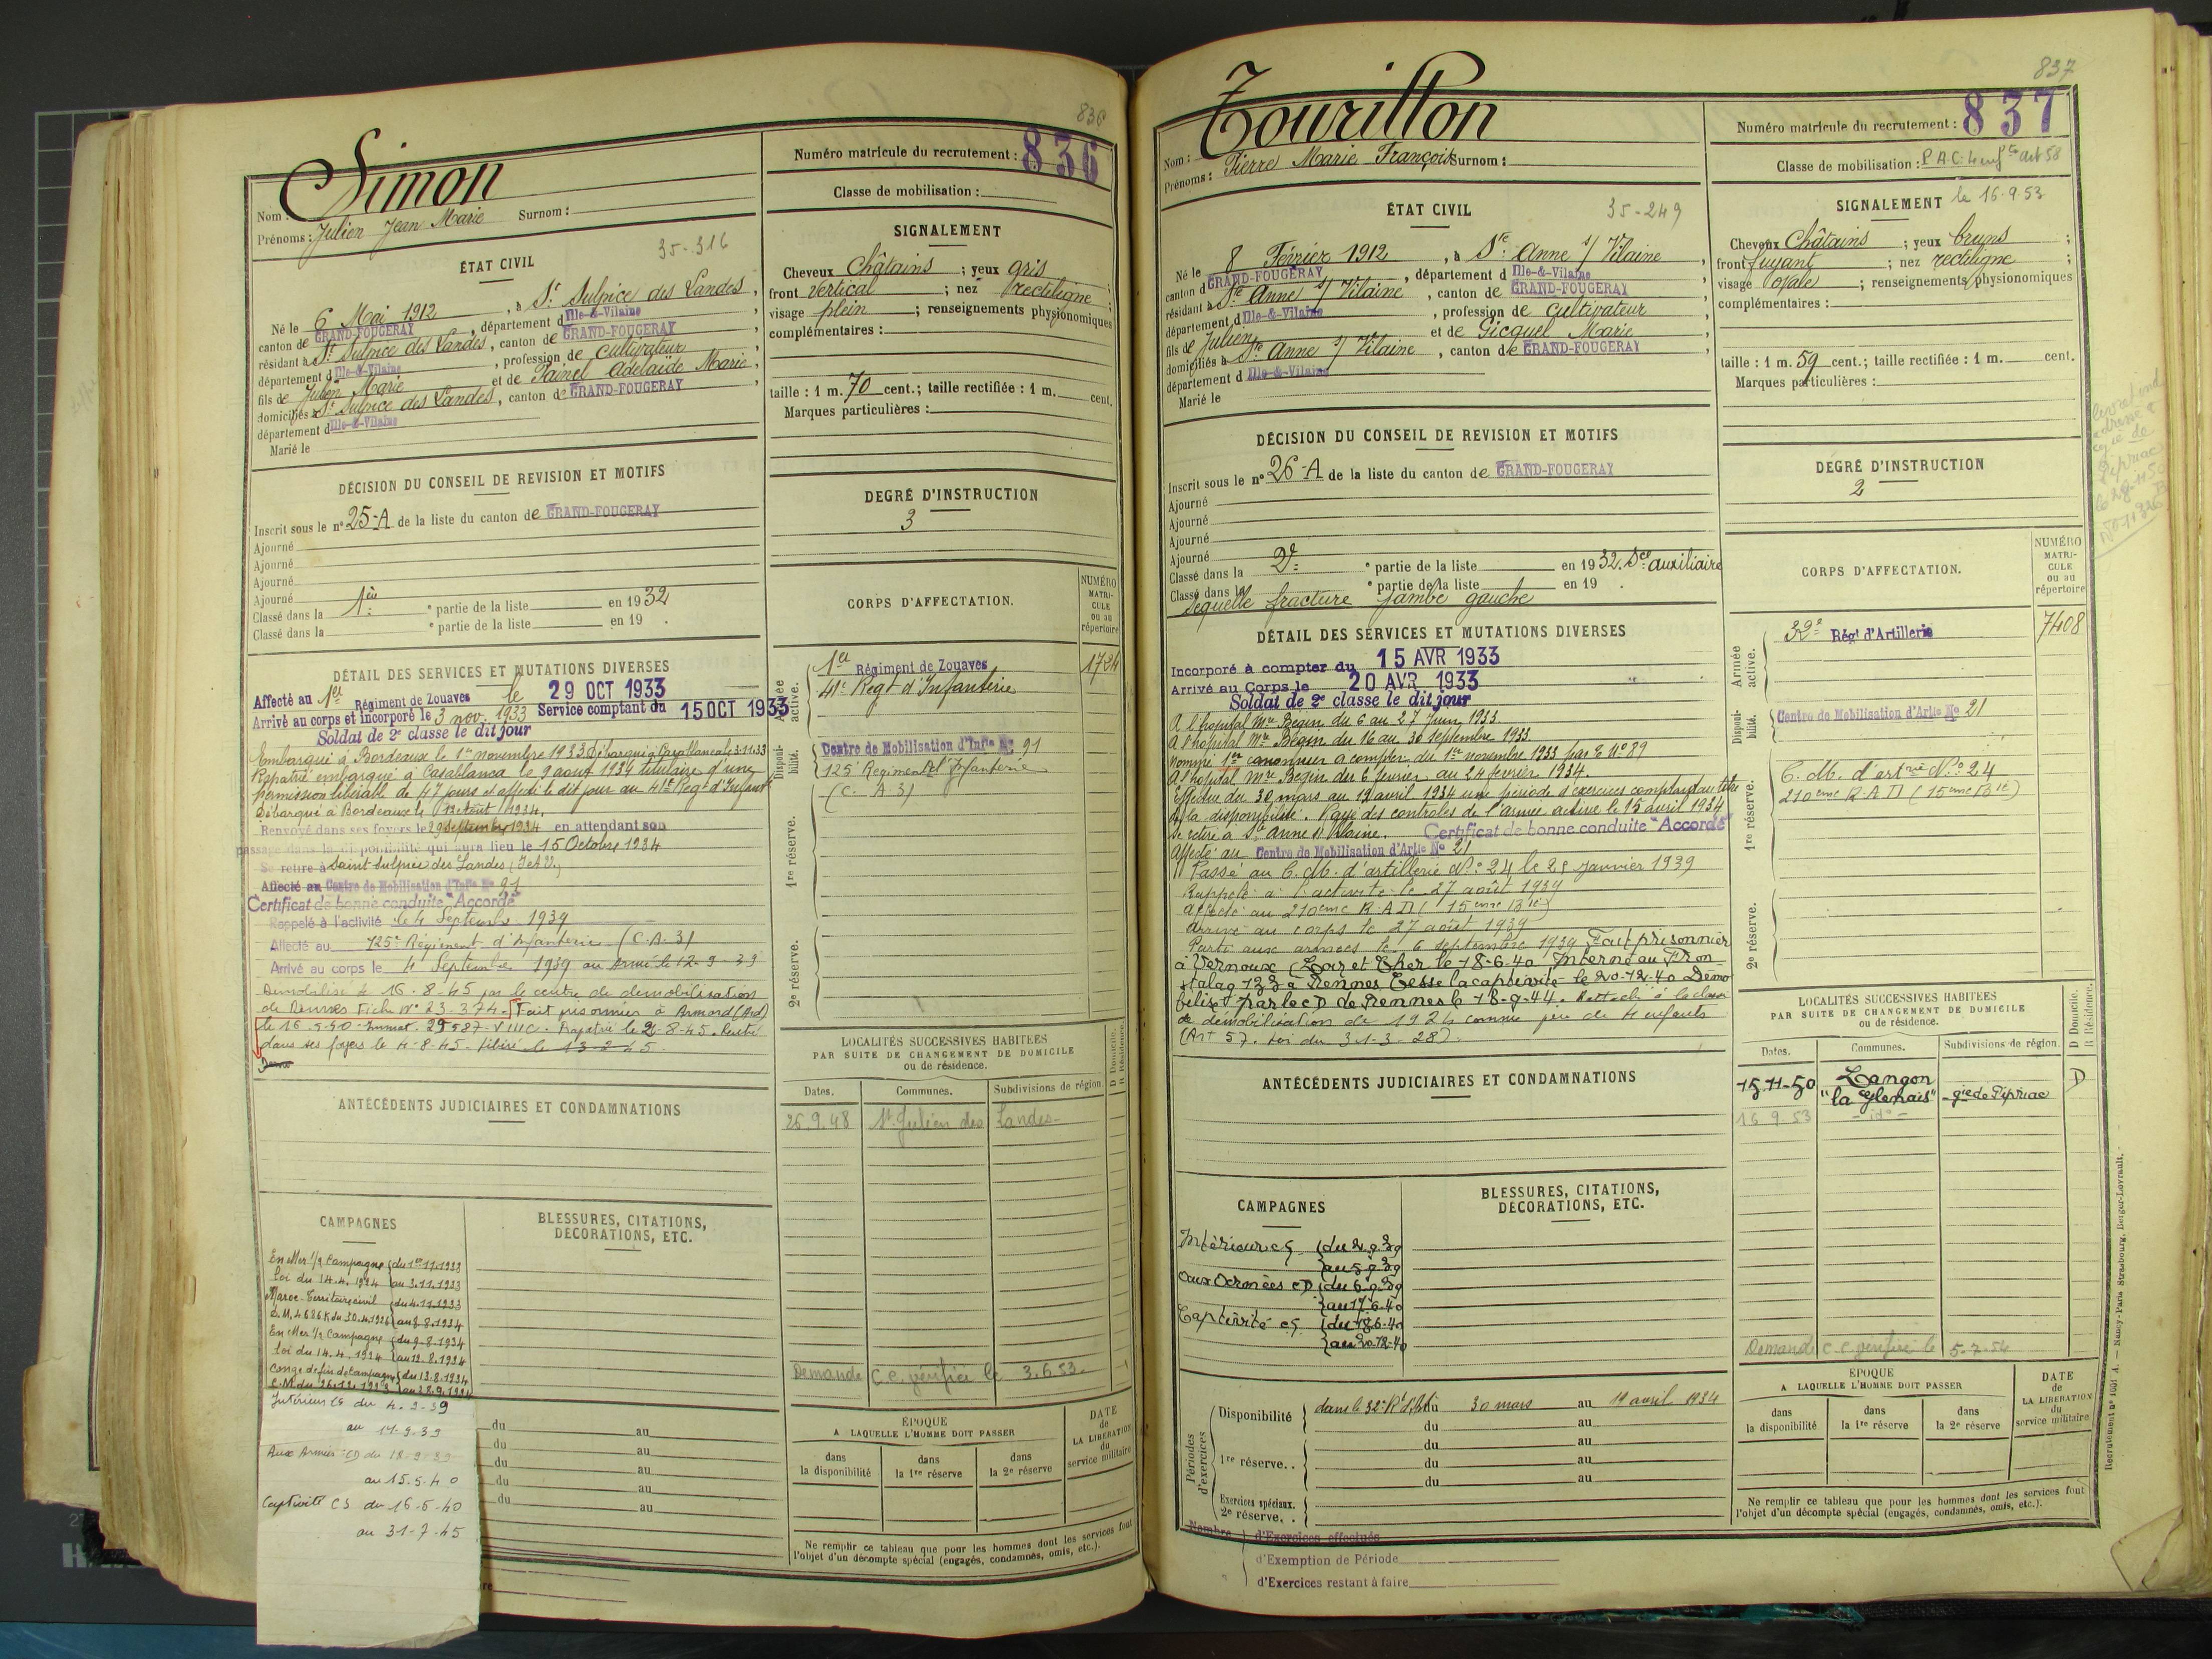 836
Simon
Numéro matricule du recrutement : 836
Nom :
Prénoms : Julien Jean Marie Surnom :
Classe de mobilisation :
35-316
ÉTAT CIVIL
Né le 6 Mai 1912, à St Sulpice des Landes,
canton de GRAND-FOUGERAY, département d Ille-&-Vilaine,
résidant à St Sulpice des Landes, canton de GRAND-FOUGERAY,
département d Ille-&-Vilaine, profession de cultivateur,
fils de Julien Marie et de Painel Adelaïde Marie,
domiciliés à St Sulpice des Landes, canton de GRAND-FOUGERAY,
département d Ille-&-Vilaine
Marié le
SIGNALEMENT
Cheveux Châtains ; yeux gris ;
front vertical ; nez rectiligne ;
visage plein ; renseignements physionomiques
complémentaires :
taille : 1 m. 70 cent.; taille rectifiée : 1 m. cent.
Marques particulières :
DÉCISION DU CONSEIL DE REVISION ET MOTIFS
Inscrit sous le n° 25-A de la liste du canton de GRAND-FOUGERAY
Ajourné
Ajourné
Ajourné
Ajourné
Classé dans la 1ère ° partie de la liste en 1932
Classé dans la ° partie de la liste en 19 .
DEGRÉ D'INSTRUCTION
3
DÉTAIL DES SERVICES ET MUTATIONS DIVERSES
Affecté au 1er Régiment de Zouaves le 29 OCT 1933
Arrivé au corps et incorporé le 3 nov. 1933 Service comptant du 15 OCT 1933
Soldat de 2e classe le dit jour
Embarqué à Bordeaux le 1er novembre 1933 Débarqué à Casablanca le 3-11-33
Rapatrié embarqué à Casablanca le 9 août 1934 titulaire d'une
permission libérable de 47 jours et affecté le dit jour au 41e Régt d'Infant
Débarqué à Bordeaux le 12 août 1934.
Renvoyé dans ses foyers le 29 septembre 1934 en attendant son
passage dans la disponibilité qui aura lieu le 15 Octobre 1934
Se retire à Saint Sulpice des Landes (I et V.)
Affecté au Centre de Mobilisation d'Infie No 91
Certificat de bonne conduite "Accordé"
Rappelé à l'activité le 4 Septembre 1939
Affecté au 125e Régiment d'Infanterie (C.A.3)
Arrivé au corps le 4 Septembre 1939 au Armée le 12-9-39
Démobilisé le 16-8-45 par le centre de démobilisation
de Rennes Fiche N° 23-374. Fait prisonnier à Armord (Ard)
le 16-5-40 - Immat. 29587-VIIIC. Rapatrié le 2-8-45. Rentré
dans ses foyers le 4-8-45.
CORPS D'AFFECTATION.
NUMÉRO MATRICULE ou au répertoire
Armée active.
1er Régiment de Zouaves 1724
41e Regt d'Infanterie
Disponibilité.
Centre de Mobilisation d'Infie No 91
125e Régiment d'Infanterie
(C. A 3)
1re réserve.
2e réserve.
LOCALITÉS SUCCESSIVES HABITÉES
PAR SUITE DE CHANGEMENT DE DOMICILE
ou de résidence.
D Domicile.
R Résidence.
Dates. Communes. Subdivisions de région.
26.9.48 St Julien des Landes
Demande C.C. vérifiée le 3.6.53.
ANTÉCÉDENTS JUDICIAIRES ET CONDAMNATIONS
CAMPAGNES
BLESSURES, CITATIONS,
DÉCORATIONS, ETC.
En Mer 1/2 Campagne du 1er 11.1933
loi du 14.4.1924 au 3.11.1933
Maroc-Territoire civil du 4.11.1933
D.M. 4686 K du 30.4.1926 au 8.8.1934
En Mer 1/2 Campagne du 9.8.1934
loi du 14.4.1924 au 12.8.1934
Congé de fin de Campagne du 13.8.1934
C.M. du 26.12.1923 au 28.9.1934
Intérieur CS du 4-9-39
au 17-9-39
Aux Armées CD du 18-9-39
au 15-5-40
Captivité CS du 16-5-40
au 31-7-45
du au
du au
du au
du au
du au
ÉPOQUE
A LAQUELLE L'HOMME DOIT PASSER
dans la disponibilité
dans la 1re réserve
dans la 2e réserve
DATE de LA LIBÉRATION du service militaire
Ne remplir ce tableau que pour les hommes dont les services font
l'objet d'un décompte spécial (engagés, condamnés, omis, etc.).
837
Tourillon
Numéro matricule du recrutement : 837
Nom :
Prénoms : Pierre Marie François Surnom :
Classe de mobilisation : P.A.C. 4 enfts art 58
35-249
ÉTAT CIVIL
Né le 8 Février 1912, à Ste Anne s/ Vilaine,
canton d GRAND-FOUGERAY, département d Ille-&-Vilaine,
résidant à Ste Anne s/ Vilaine, canton de GRAND-FOUGERAY,
département d Ille-&-Vilaine, profession de cultivateur,
fils de Julien et de Gicquel Marie,
domiciliés à Ste Anne s/ Vilaine, canton de GRAND-FOUGERAY,
département d Ille-&-Vilaine
Marié le
SIGNALEMENT le 16-9-53
Cheveux Châtains ; yeux bruns ;
front fuyant ; nez rectiligne ;
visage ovale ; renseignements physionomiques
complémentaires :
taille : 1 m. 59 cent.; taille rectifiée : 1 m. cent.
Marques particulières :
DÉCISION DU CONSEIL DE REVISION ET MOTIFS
Inscrit sous le n° 26-A de la liste du canton de GRAND-FOUGERAY
Ajourné
Ajourné
Ajourné
Ajourné
Classé dans la 2e ° partie de la liste en 1932. Sce auxiliaire
Classé dans la ° partie de la liste en 19 .
Séquelle fracture jambe gauche
DEGRÉ D'INSTRUCTION
2
DÉTAIL DES SERVICES ET MUTATIONS DIVERSES
Incorporé à compter du 15 AVR 1933
Arrivé au Corps le 20 AVR 1933
Soldat de 2e classe le dit jour
A l'hôpital Mre Bégin du 6 au 27 Juin 1933.
A l'hôpital Mre Bégin du 16 au 30 septembre 1933.
Nommé 1er canonnier à compter du 1er novembre 1933 par O N° 89
A l'hôpital Mre Begin du 6 février au 24 février 1934.
Effectue du 30 mars au 19 avril 1934 une période d'exercices comptant au titre
de la disponibilité. Rayé des contrôles de l'armée active le 15 avril 1934
Se retire à Ste Anne s/ Vilaine. Certificat de bonne conduite "Accordé"
Affecté au Centre de Mobilisation d'Artie No 21
Passé au C.M. d'artillerie N° 24 le 25 janvier 1939
Rappelé à l'activité le 27 août 1939
affecté au 210ème R.A.D. (15ème Bie)
arrivé au corps le 27 août 1939
Parti aux armées le 6 septembre 1939 Fait prisonnier
à Vernoux (Loir et Cher le 18-6-40 Interné au Fron-
stalag 133 à Rennes Cesse la captivité le 20-12-40 Démo
bilisé par le CD de Rennes le 18-9-44. Rattaché à la classe
de démobilisation de 1924 comme père de 4 enfants
(Art 57. Loi du 31-3-28).
CORPS D'AFFECTATION.
NUMÉRO MATRICULE ou au répertoire
Armée active.
32e Régt d'Artillerie 7408
Disponibilité.
Centre de Mobilisation d'Artie No 21
1re réserve.
C. M. d'artrie N° 24
210ème R.A.D (15ème Bie)
2e réserve.
LOCALITÉS SUCCESSIVES HABITÉES
PAR SUITE DE CHANGEMENT DE DOMICILE
ou de résidence.
D Domicile.
R Résidence.
Dates. Communes. Subdivisions de région.
15-11-50 Langon "la Glenais" gie de Pipriac D
16 9.53 - id° -
Demande C.C. vérifiée le 5-7-54
ANTÉCÉDENTS JUDICIAIRES ET CONDAMNATIONS
CAMPAGNES
BLESSURES, CITATIONS,
DÉCORATIONS, ETC.
Intérieur CS du 2-9-39
au 5-9-39
aux Armées CD du 6-9-39
au 17-6-40
Captivité CS du 18-6-40
au 20-12-40
Périodes d'exercices
Disponibilité dans le 32e R d'Art du 30 mars au 19 avril 1934
du au
1re réserve.. du au
du au
du au
Exercices spéciaux.
2e réserve. .
Nombre d'Exercices effectués
d'Exemption de Période
d'Exercices restant à faire
ÉPOQUE
A LAQUELLE L'HOMME DOIT PASSER
dans la disponibilité
dans la 1re réserve
dans la 2e réserve
DATE de LA LIBÉRATION du service militaire
Ne remplir ce tableau que pour les hommes dont les services font
l'objet d'un décompte spécial (engagés, condamnés, omis, etc.).
Recrutement n° 1601 A. — Nancy-Paris-Strasbourg, Berger-Levrault.